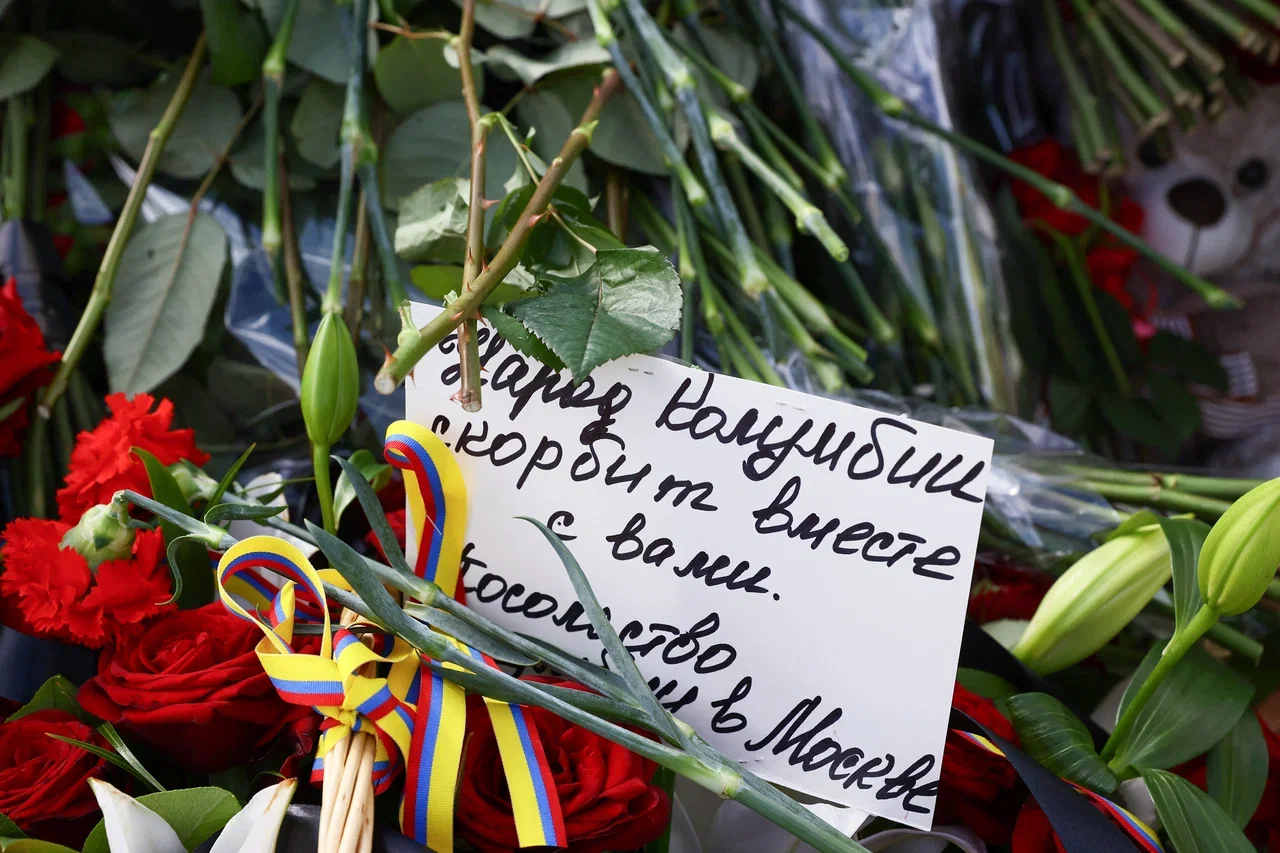 Народ Колумбии
скорбит вместе
с вами.
Посольство
в Москве